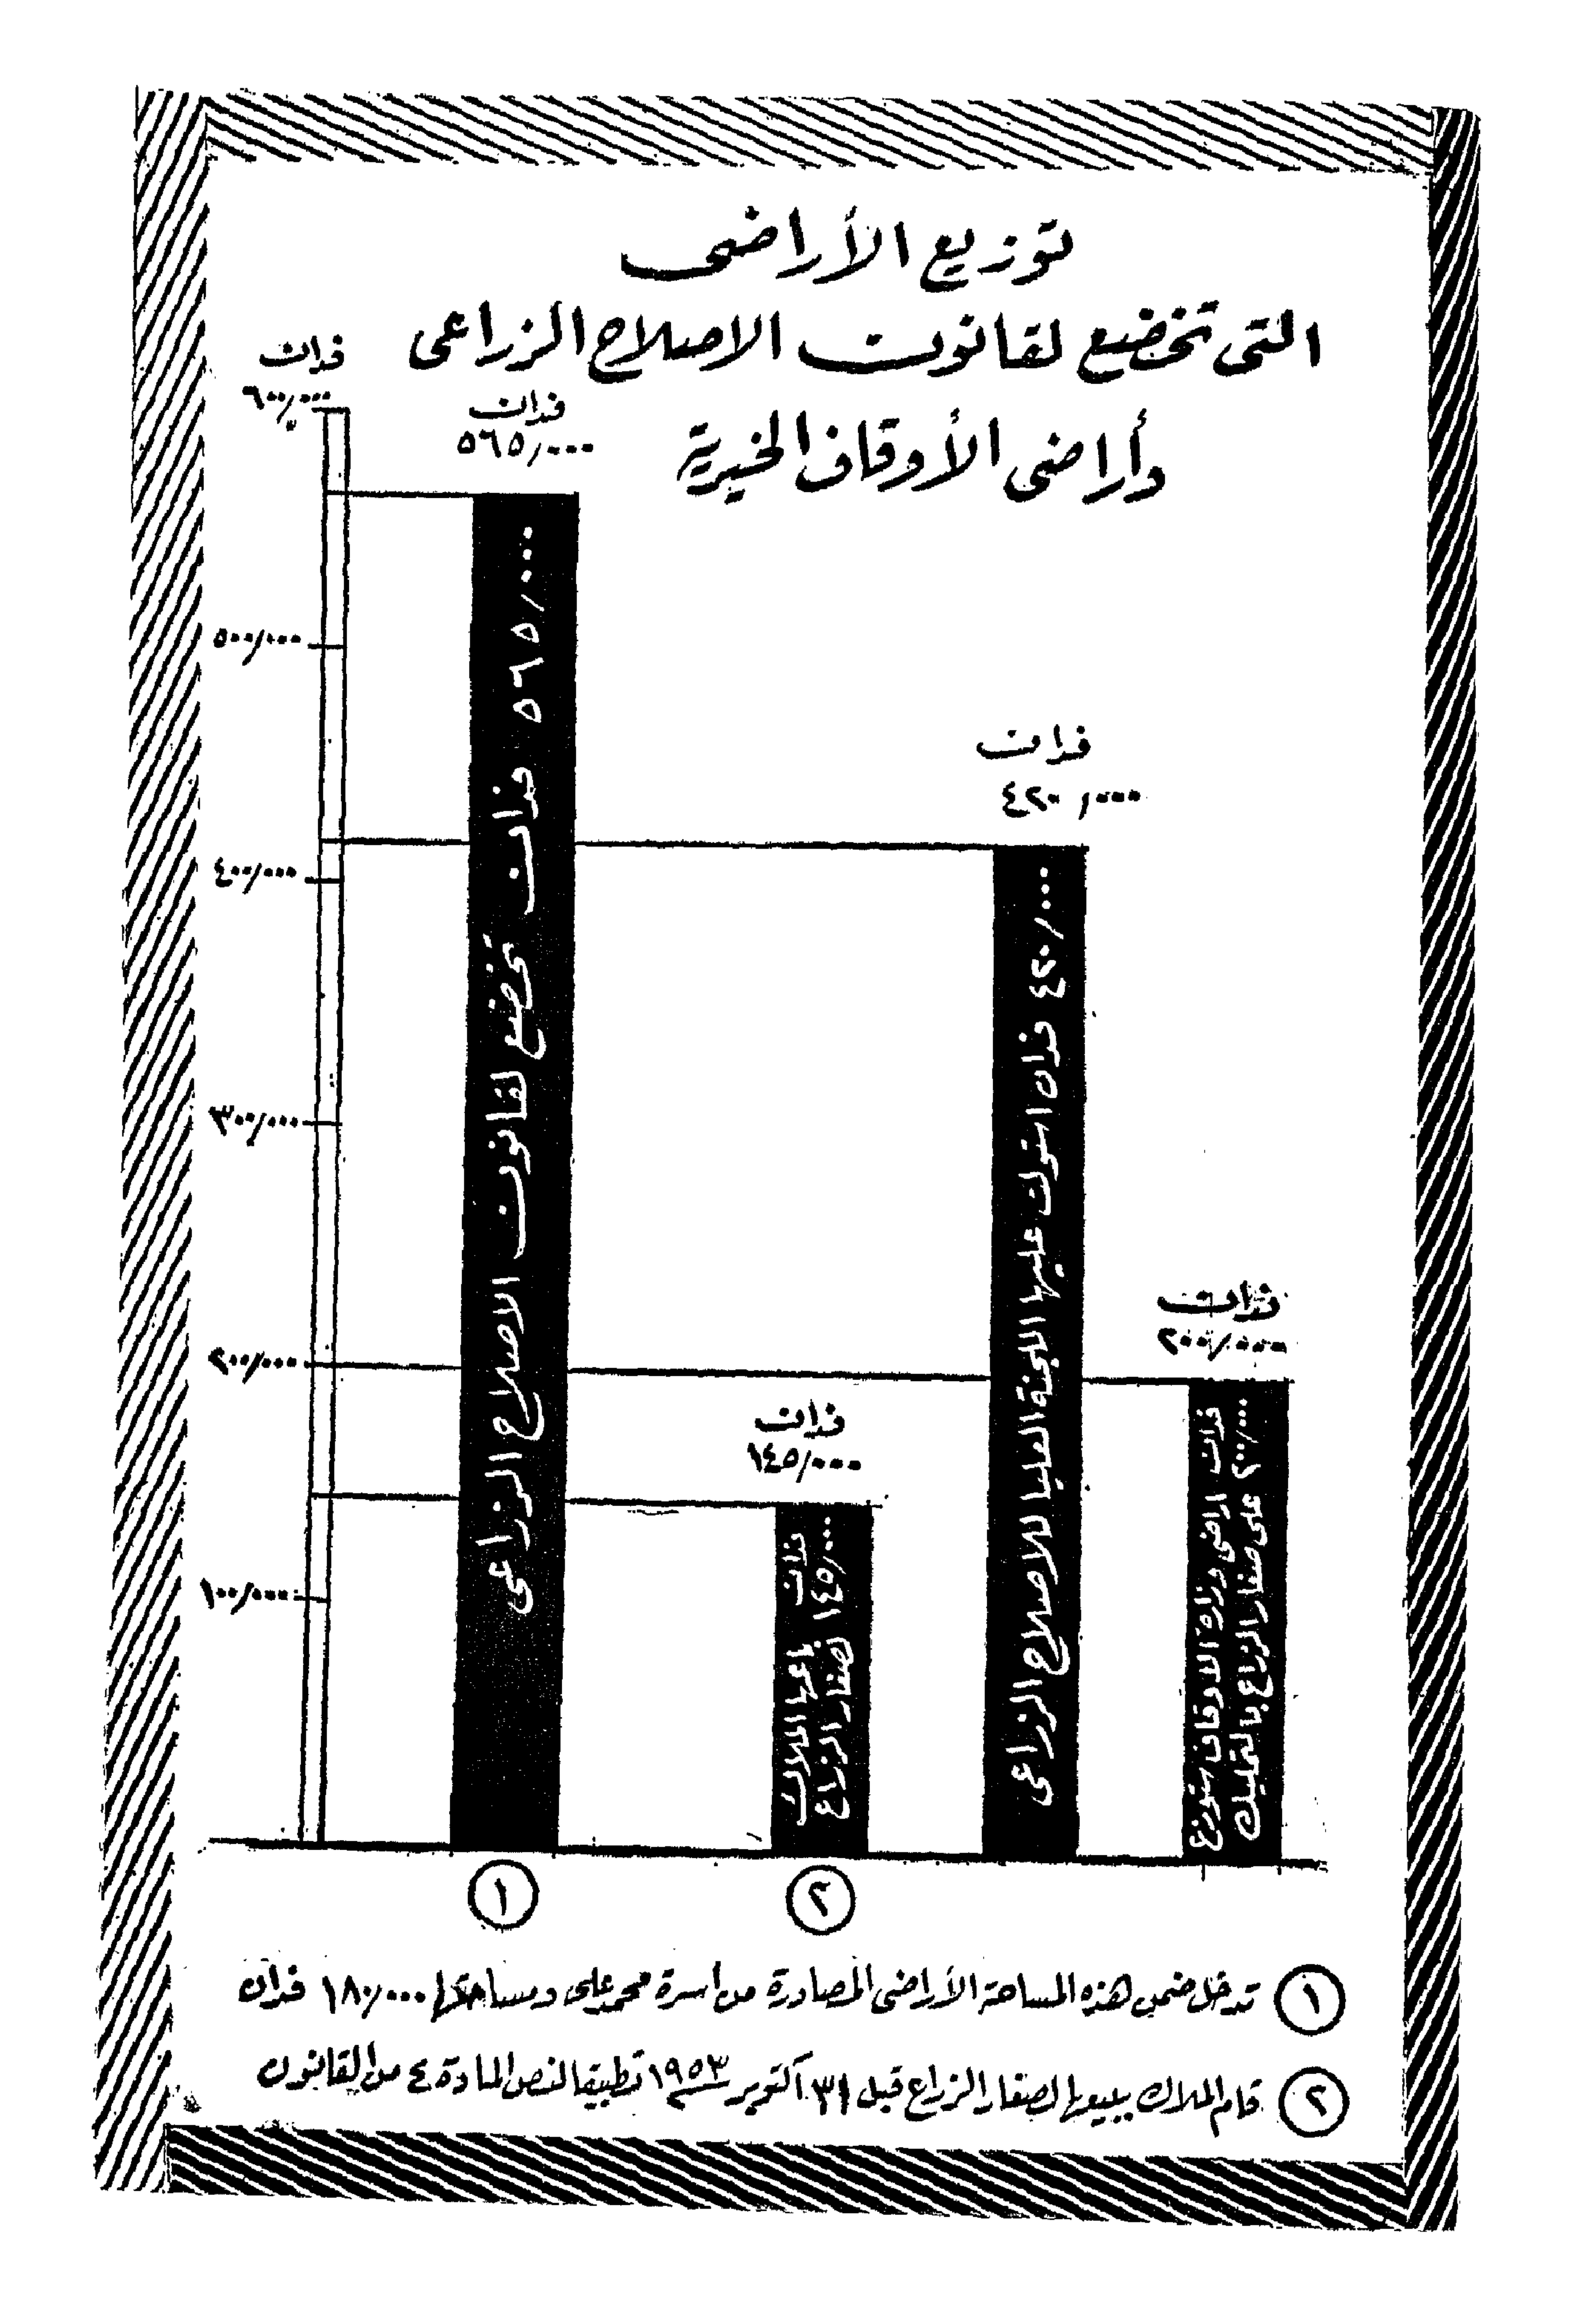 توزيع الأراضى
التى تخضع لقانون الاصلاح الزراعى
وأراضى الأوقاف الخيرية
فدان
٦٠٠/٠٠٠
٥٠٠/٠٠٠
٤٠٠/٠٠٠
٣٠٠/٠٠٠
٢٠٠/٠٠٠
١٠٠/٠٠٠
فدان
٥٦٥/٠٠٠
٥٦٥/٠٠٠ فدان تخضع لقانون الاصلاح الزراعى
فدان
١٤٥/٠٠٠
١٤٥/٠٠٠ فدان
باعها الملاك
لصغار الزراع
فدان
٤٢٠/٠٠٠
٤٢٠/٠٠٠ فدان استولت عليها اللجنة العليا للاصلاح الزراعى
فدان
٢٠٠/٠٠٠
٢٠٠/٠٠٠ فدان اراضى وزارة الاوقاف ستوزع
على صغار الزراع بالتمليك
١
٢
١ تدخل ضمن هذه المساحة الأراضى المصادرة من اسرة محمد على ومساحتها ١٨٠/٠٠٠ فدان
٢ قام الملاك ببيعها لصغار الزراع قبل ٣١ أكتوبر ١٩٥٣ تطبيقا لنص المادة ٤ من القانون